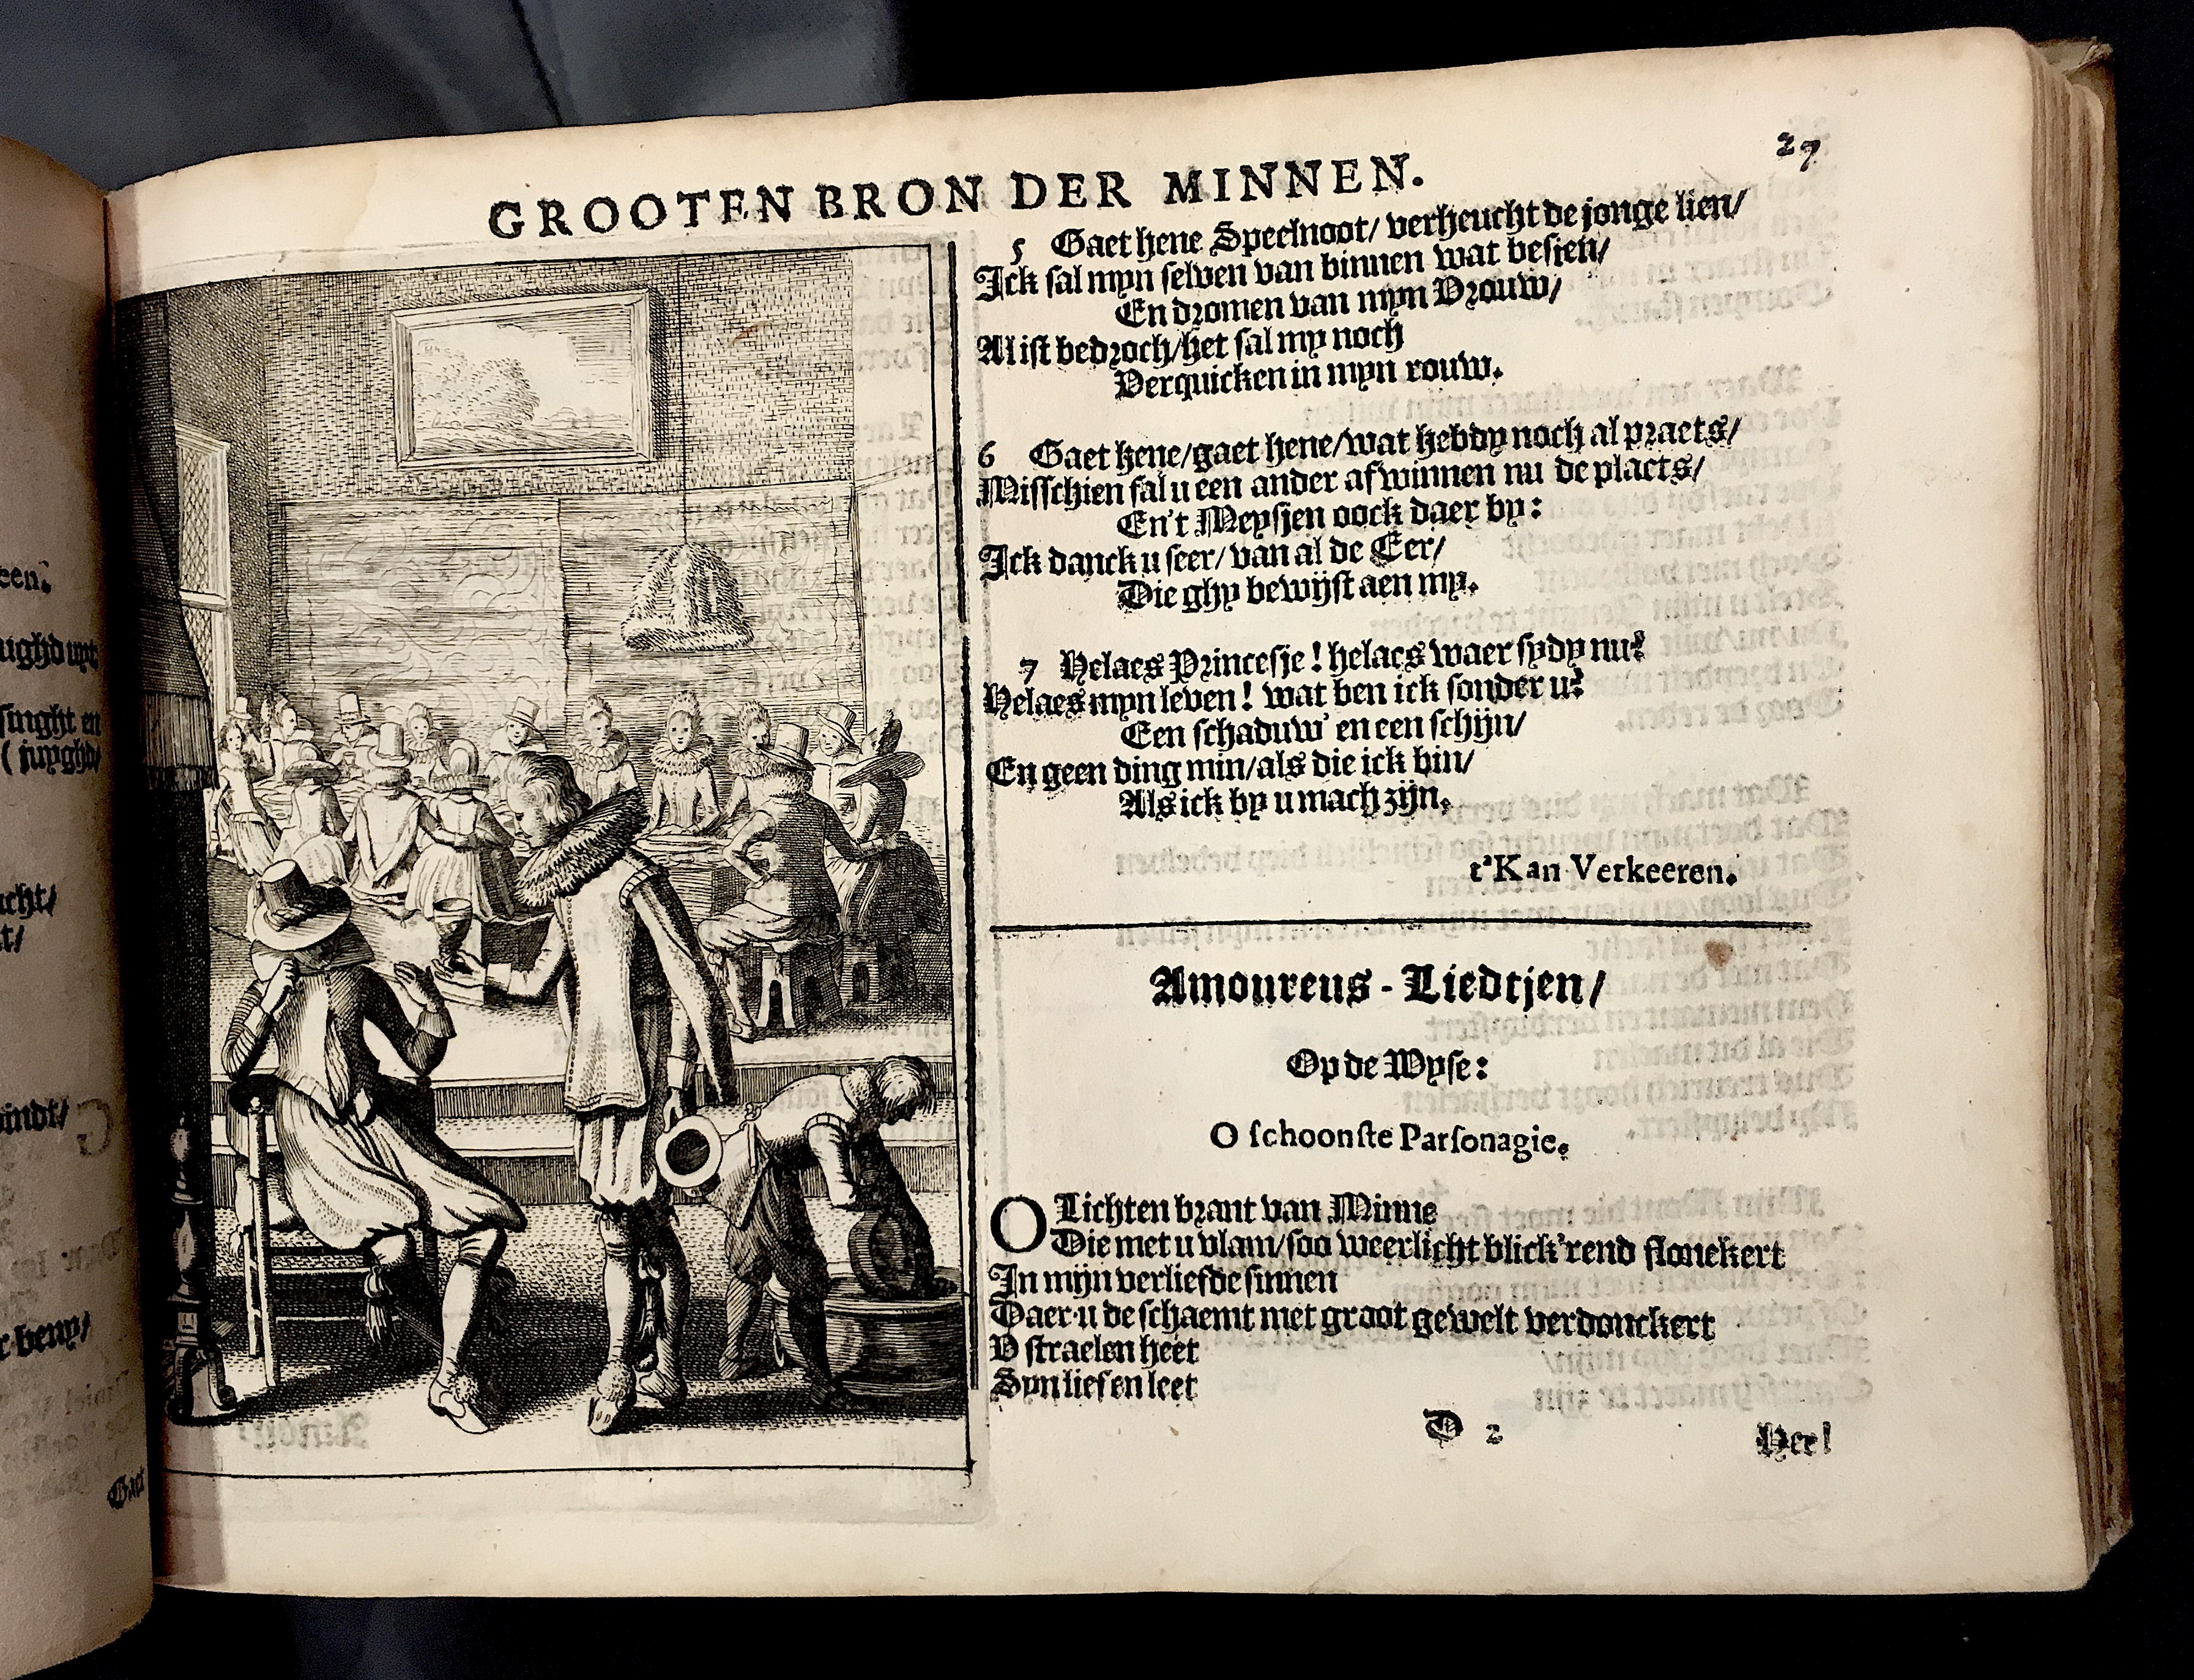 GROOTEN BRON DER MINNEN.
27
5 Gaet hene Speelnoot/ verheucht de jonge lien/
Ick sal myn selven van binnen wat besien/
En dromen van myn Vrouw/
Al ist bedroch/het sal my noch
Verquicken in myn rouw.
6 Gaet hene/gaet hene/wat hebdy noch al praets/
Misschien sal u een ander af winnen nu de plaets/
En't Meysjen oock daer by:
Ick danck u seer/ van al de Eer/
Die ghy bewijst aen my.
7 Helaes Princesje! helaes waer sydy nu?
Helaes myn leven! wat ben ick sonder u?
Een schaduw' en een schijn/
En geen ding min/als die ick bin/
Als ick by u mach zijn.
t'Kan Verkeeren.
Amoureus-Liedtjen/
Op de Wyse:
O schoonste Parsonagie.
O Lichten brant van Minne
Die met u vlam/soo weerlicht blick'rend flonckert
In mijn verliefde sinnen
Daer u de schaemt met groot gewelt verdonckert
V straelen heet
Syn lief en leet
D 2
Heel
een.
ughd uyt
singht en
( juyghd/
ucht/
t/
indt/
r heny/
Gaet